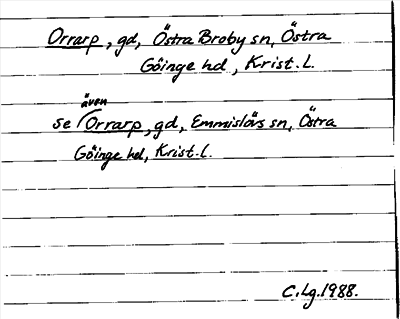 Orrarp, gd, Östra Broby sn, Östra
Göinge hd, Krist. L.
även
se Orrarp, gd, Emmislövs sn, Östra
Göinge hd, Krist. L.
C. Lg. 1988.